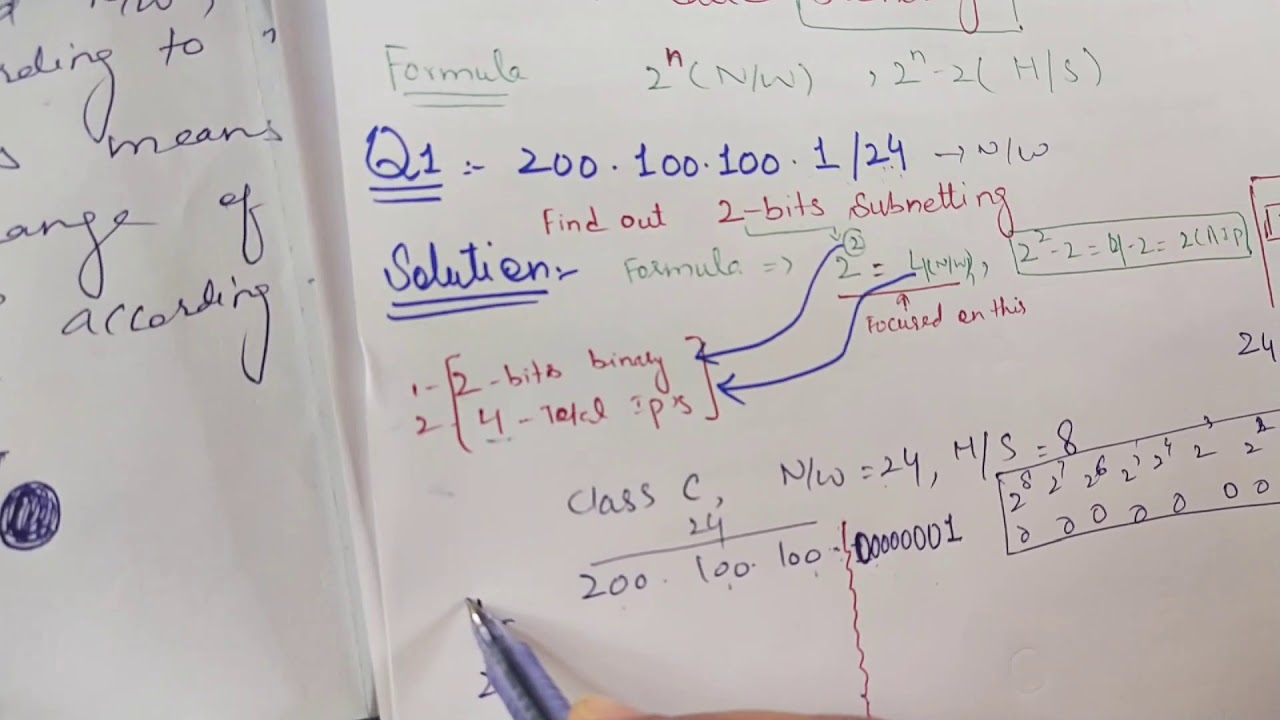 rding to
means
ange of
according
Formula 2^n (N/W) , 2^n-2 ( H/S )
Q1 :- 200.100.100.1/24 → N/W
Find out 2-bits Subnetting
Solution:- Formula => 2^② = 4(N/W), 2^2-2=4-2=2
Focused on this
1- 2-bits binary
2 4-Total IP's
24
Class C, N/W = 24, H/S = 8
24
200. 100. 100. 00000001
0 0 0 0 0 0 0